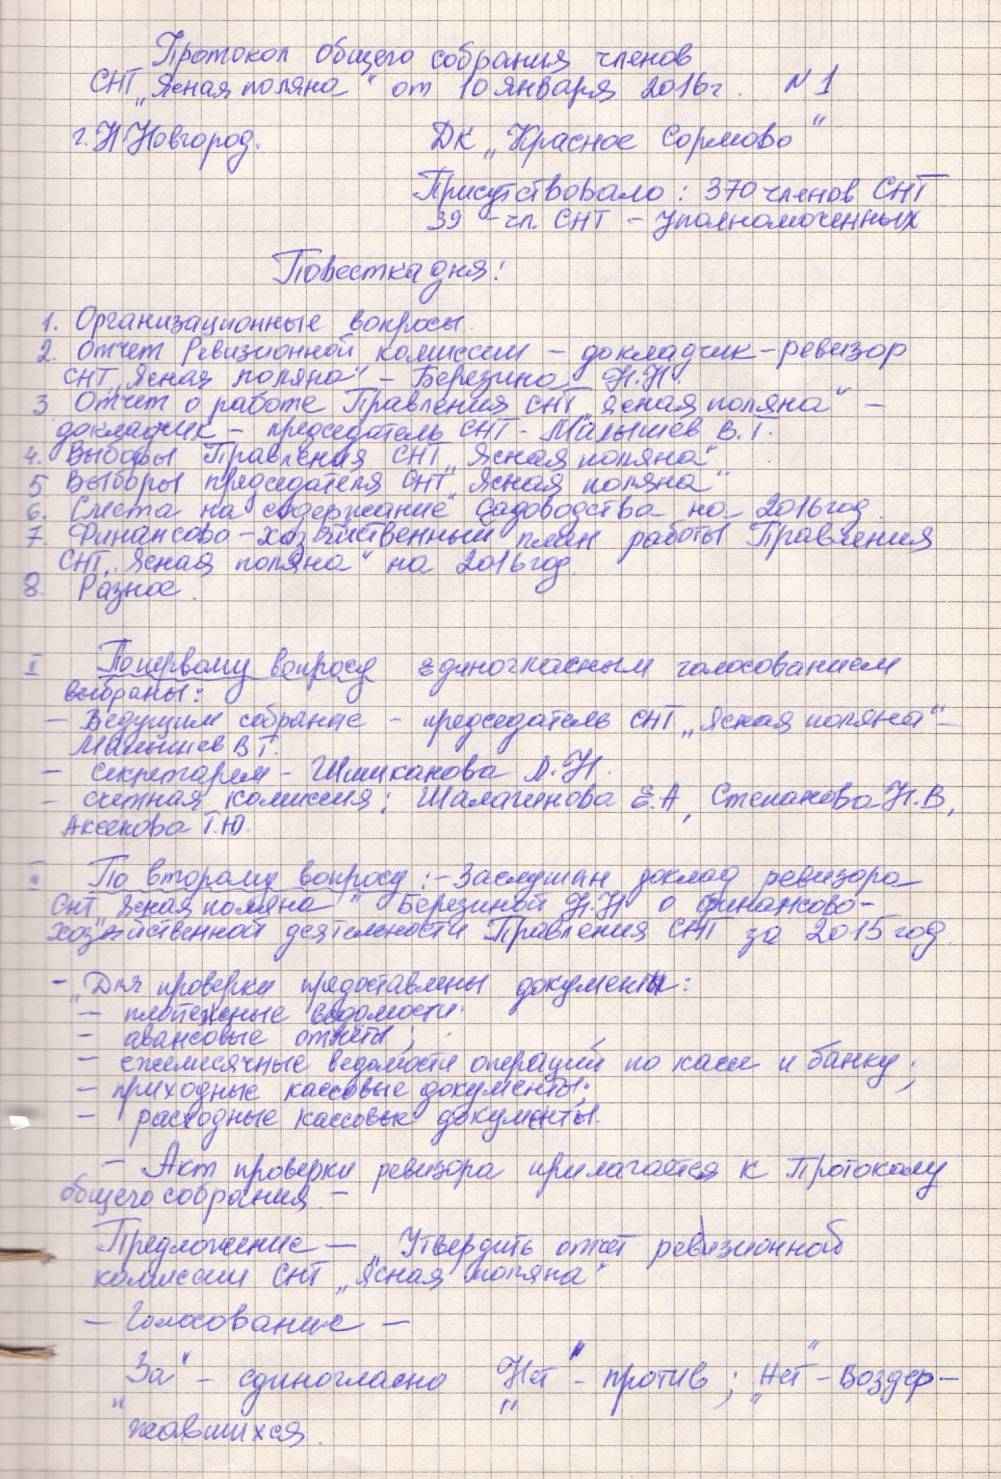 Протокол общего собрания членов
СНТ „Ясная поляна“ от 10 января 2016г. N 1
г. Н Новгород. ДК „Красное Сормово“
Присутствовало: 370 членов СНТ
39 – чл. СНТ – уполномоченных
Повестка дня:
1. Организационные вопросы.
2. Отчет Ревизионной комиссии – докладчик – ревизор
СНТ „Ясная поляна“ – Березина Н.Н.
3 Отчет о работе Правления СНТ „Ясная поляна“ –
докладчик – председатель СНТ - Малышев В.Г.
4. Выборы Правления СНТ „Ясная поляна“
5 Выборы председателя СНТ „Ясная поляна“
6. Смета на содержание садоводства на 2016 год.
7. Финансово – хозяйственный план работы Правления
СНТ „Ясная поляна“ на 2016 год.
8. Разное.
I По первому вопросу единогласным голосованием
выбраны:
– Ведущим собрание – председатель СНТ „Ясная поляна“ –
Малышев В Г.
– секретарем – Шмаканова Л.Н.
– счетная комиссия: Шалагинова Е.А, Степанова Н.В,
Аксенова Т.Ю.
II По второму вопросу: – Заслушан доклад ревизора
СНТ „Ясная поляна“ Березиной Н.Н о финансово-
хозяйственной деятельности Правления СНТ за 2015 год.
– „Для проверки предоставлены документы:
– платежные ведомости.
– авансовые отчеты;
– ежемесячные ведомости операций по кассе и банку;
– приходные кассовые документы;
– расходные кассовые документы.
– Акт проверки ревизора прилагается к Протоколу
общего собрания –
Предложение – „Утвердить отчет ревизионной
комиссии СНТ „Ясная поляна“
– Голосование –
„За“ – единогласно „Нет“ – против; „Нет“ – Воздер-
жавшихся.